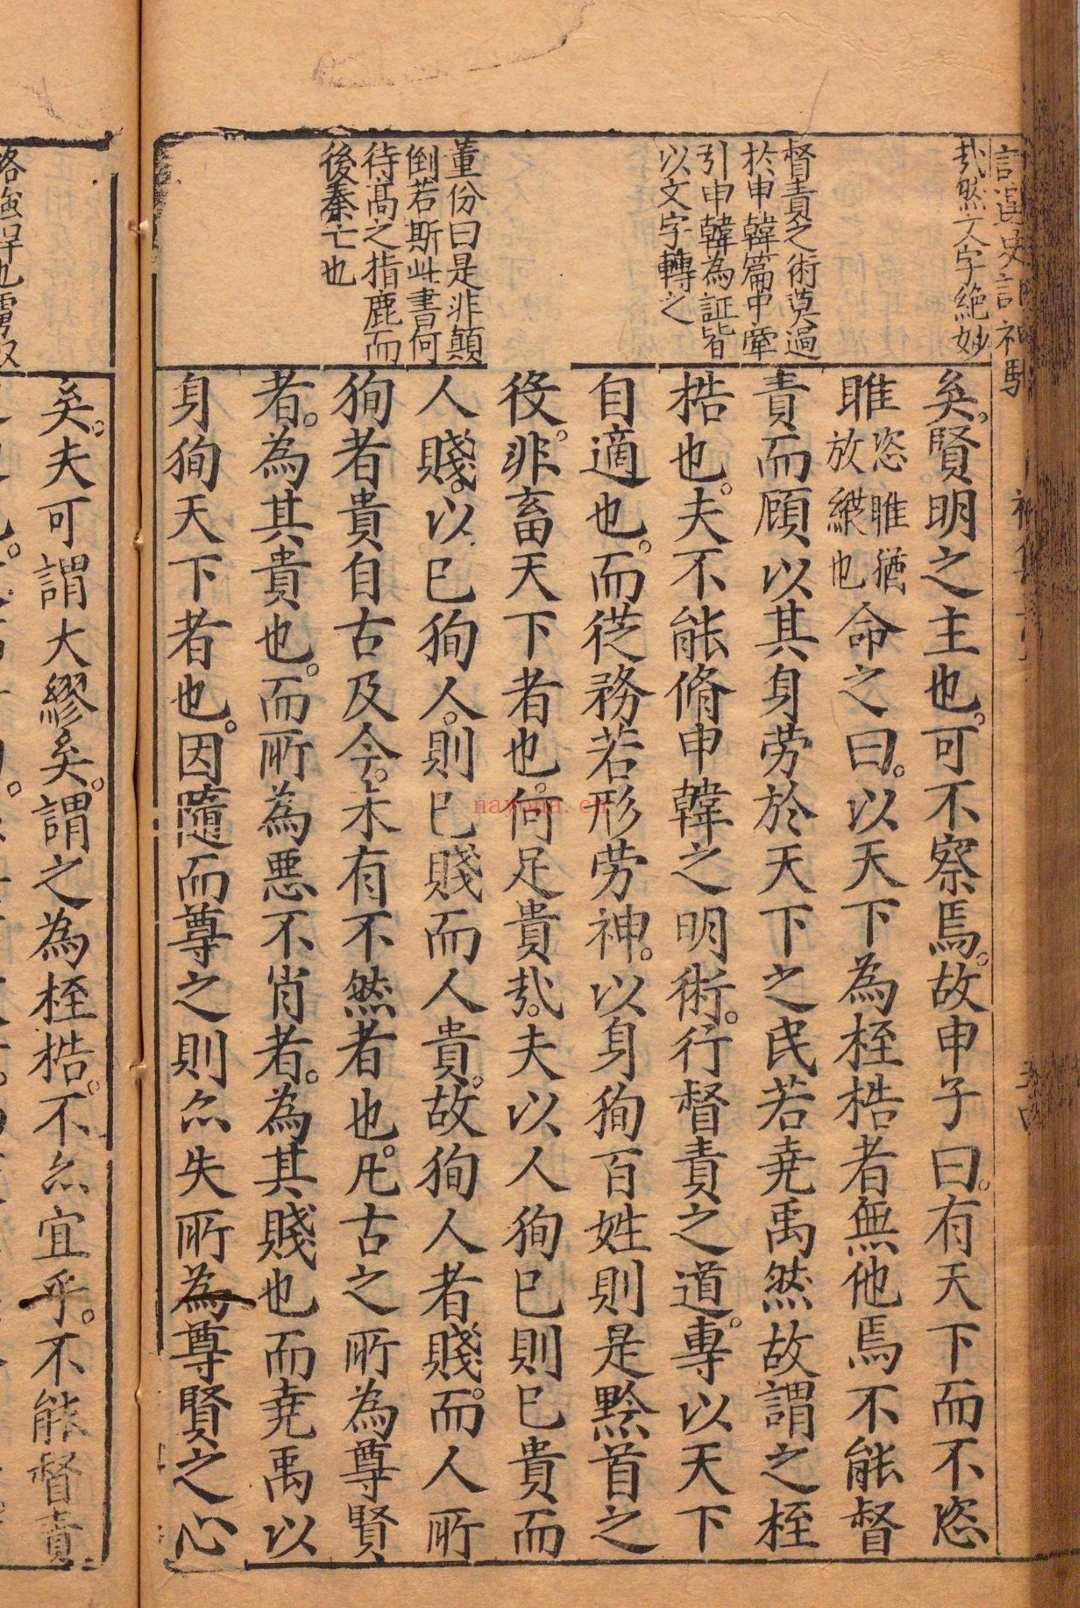 哉然文字絶妙
督責之術莫過
於申韓篇中牽
引申韓為証皆
以文字轉之
董份曰是非顛
倒若斯此書何
待高之指鹿而
後秦亡也
矣。賢明之主也。可不察焉。故申子曰。有天下而不恣
睢恣睢猶放縱也命之曰。以天下為桎梏者無他焉不能督
責而顧以其身劳於天下之民若堯禹然故謂之桎
梏也。夫不能脩申韓之明術。行督責之道。專以天下
自適也。而從務若形劳神。以身狥百姓則是黔首之
役。非畜天下者也。何足貴哉。夫以人狥已則已貴而
人賤。以已狥人。則已賤而人貴。故狥人者賤。而人所
狥者貴自古及今。未有不然者也。凡古之所為尊賢
者。為其貴也。而所為惡不肖者。為其賤也而堯禹以
身狥天下者也。因隨而尊之則亦失所為尊賢之心
矣。夫可謂大繆矣。謂之為桎梏。不亦宜乎。不能督責
nayona.cn